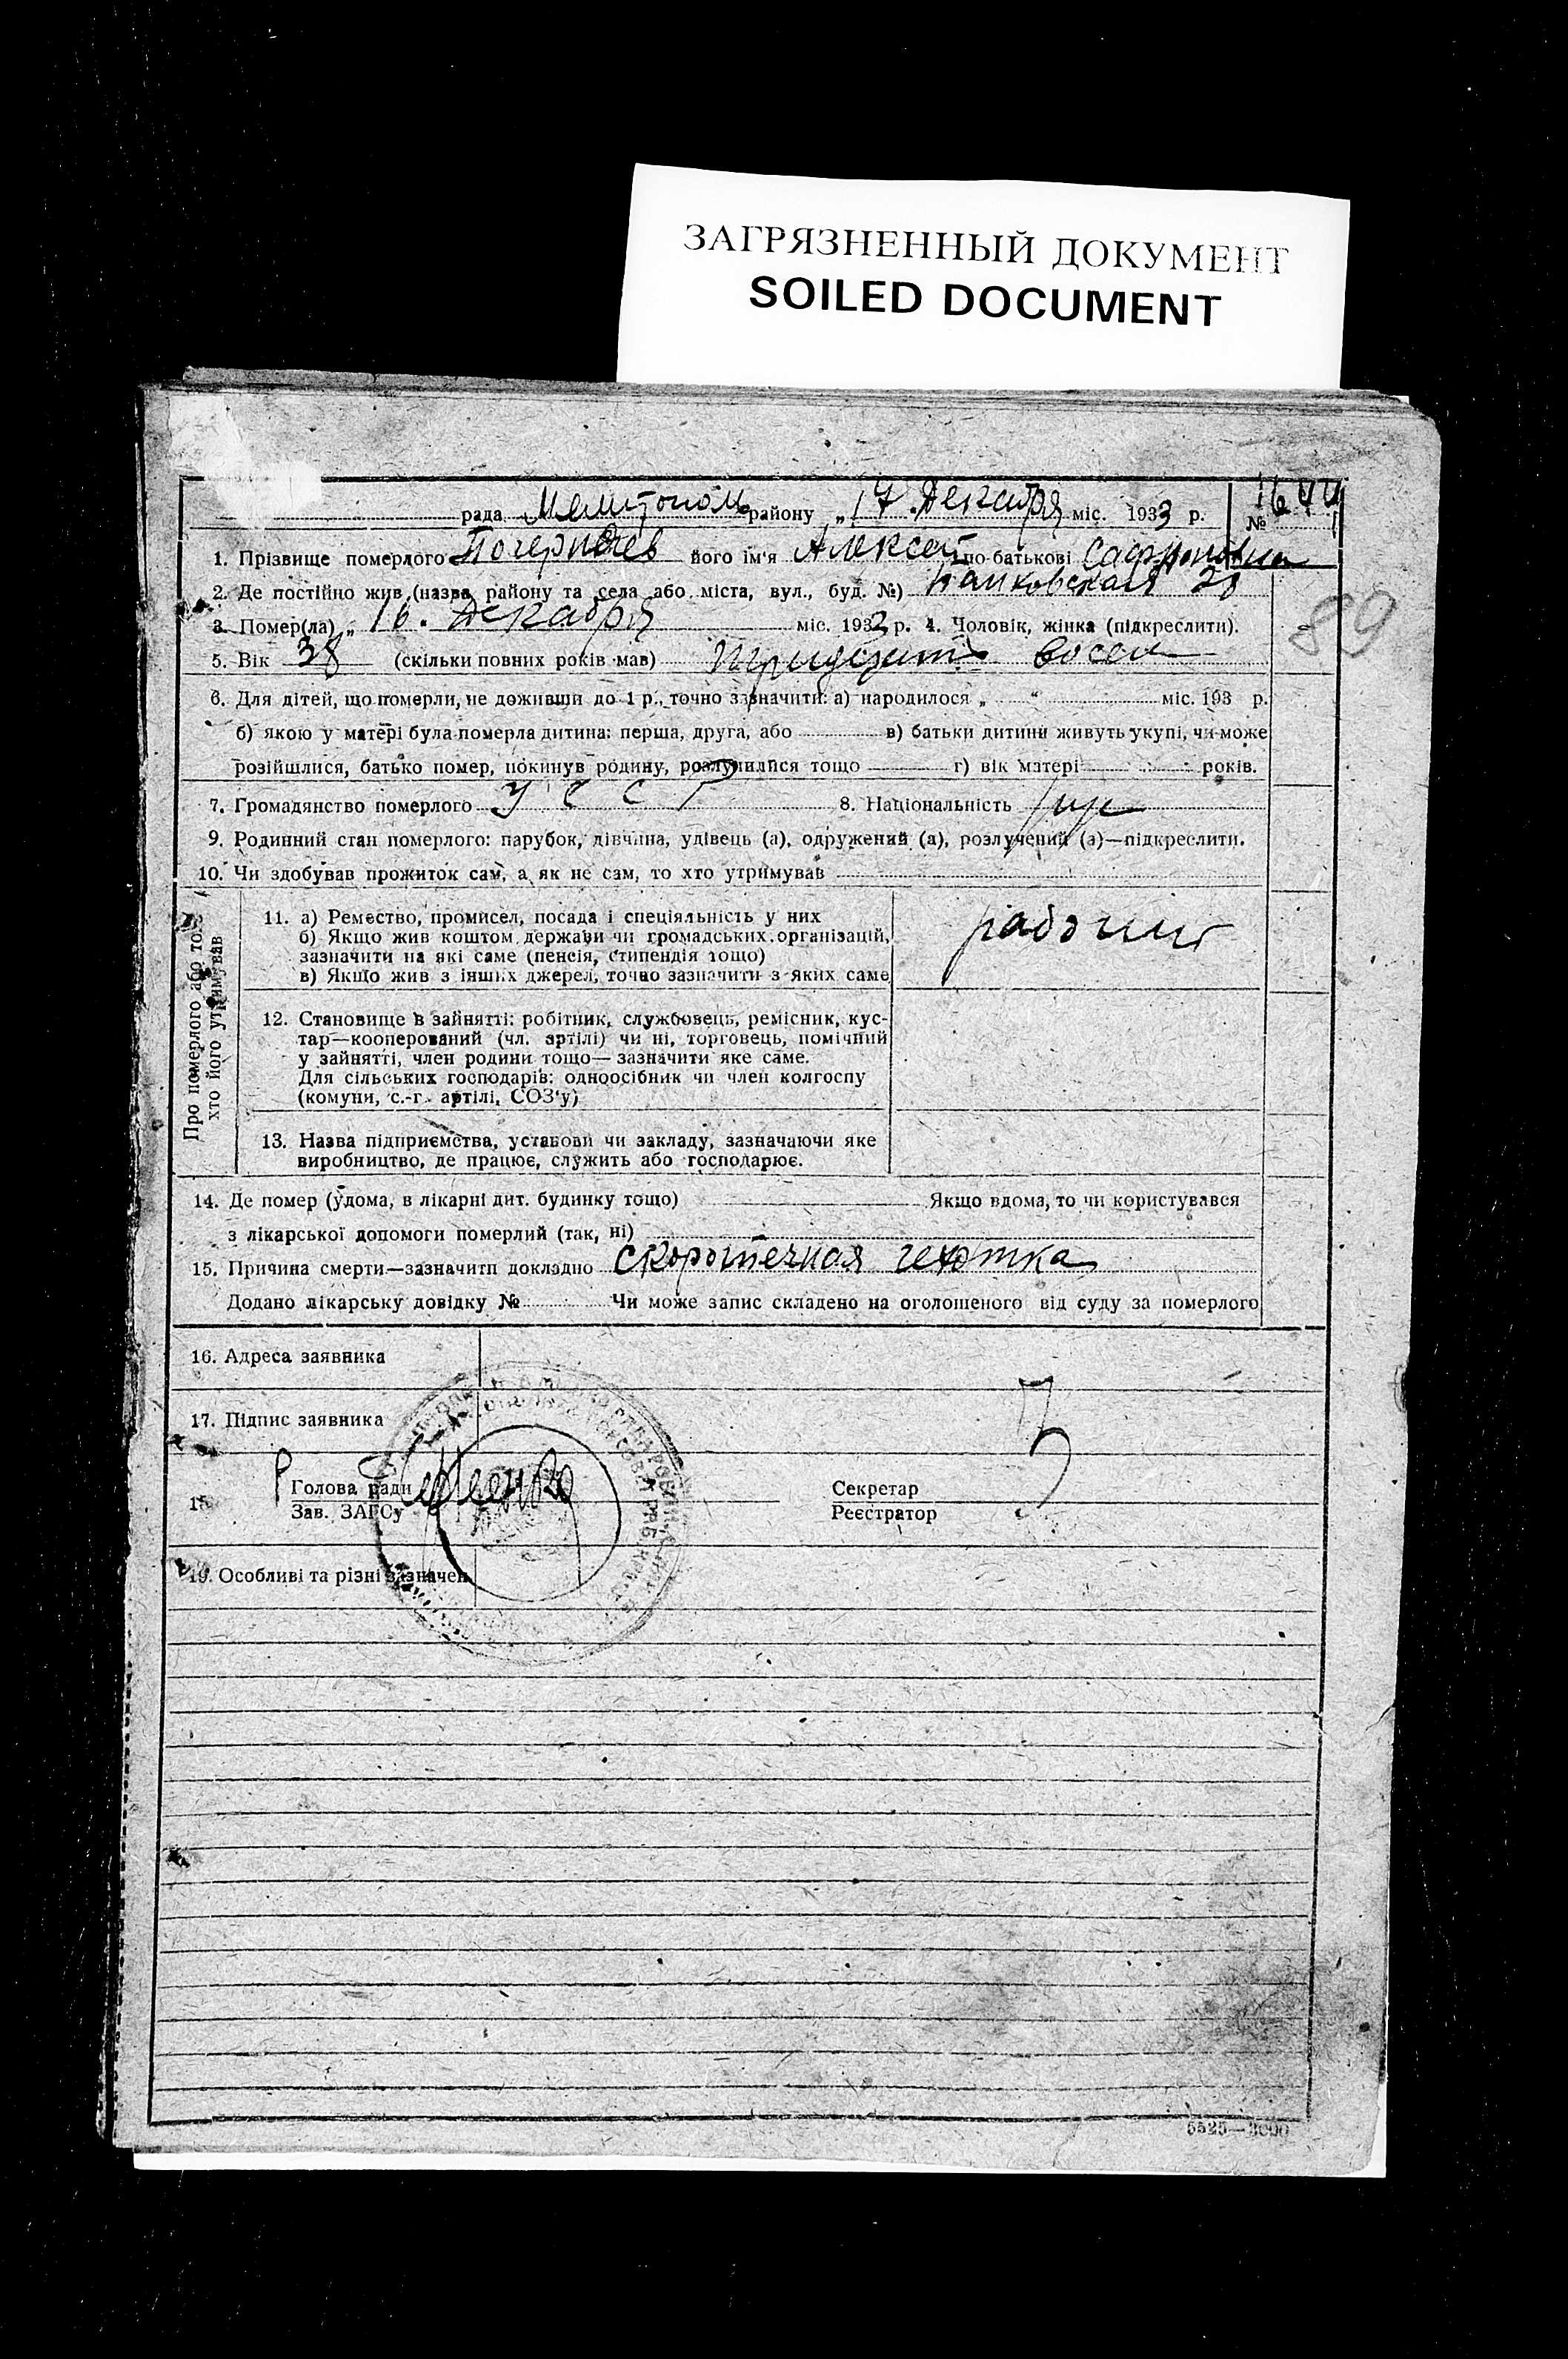 ЗАГРЯЗНЕННЫЙ ДОКУМЕНТ
SOILED DOCUMENT
рада Мелитополь району „17 Декабря міс. 1933 р. №
1. Прізвище померлого його ім'я Алексей по-батькові
2. Де постійно жив (назва району та села або міста, вул., буд. №) 28
89
3. Помер(ла) „16. Декабря міс. 1933 р. 4. Чоловік, жінка (підкреслити).
5. Вік 38 (скільки повних років мав) тридцать восем
6. Для дітей, що померли, не доживши до 1 р., точно зазначити: а) народилося „ “ міс. 193 р.
б) якою у матері була померла дитина: перша, друга, або в) батьки дитини живуть укупі, чи може
розійшлися, батько помер, покинув родину, розлучилися тощо г) вік матері років.
7. Громадянство померлого У С С Р 8. Національність рус
9. Родинний стан померлого: парубок, дівчина, удівець (а), одружений (а), розлучений (а)—підкреслити.
10. Чи здобував прожиток сам, а як не сам, то хто утримував
Про померлого або того, хто його утримував
11. а) Ремество, промисел, посада і спеціяльність у них рабочий
б) Якщо жив коштом держави чи громадських організацій,
зазначити на які саме (пенсія, стипендія тощо)
в) Якщо жив з інших джерел, точно зазначити з яких саме
12. Становище в зайнятті: робітник, службовець, ремісник, кус-
тар—кооперований (чл. артілі) чи ні, торговець, помічний
у зайнятті, член родини тощо— зазначити яке саме.
Для сільських господарів: одноосібник чи член колгоспу
(комуни, с.-г. артілі, СОЗ'у)
13. Назва підприємства, установи чи закладу, зазначаючи яке
виробництво, де працює, служить або господарює.
14. Де помер (удома, в лікарні дит. будинку тощо) Якщо вдома, то чи користувався
з лікарської допомоги померлий (так, ні)
15. Причина смерти—зазначити докладно скоротечная чехотка
Додано лікарську довідку № Чи може запис складено на оголошеного від суду за померлого
16. Адреса заявника
17. Підпис заявника
18. Голова ради Секретар
Зав. ЗАГСу Реєстратор
19. Особливі та різні зазначен
5525—3000